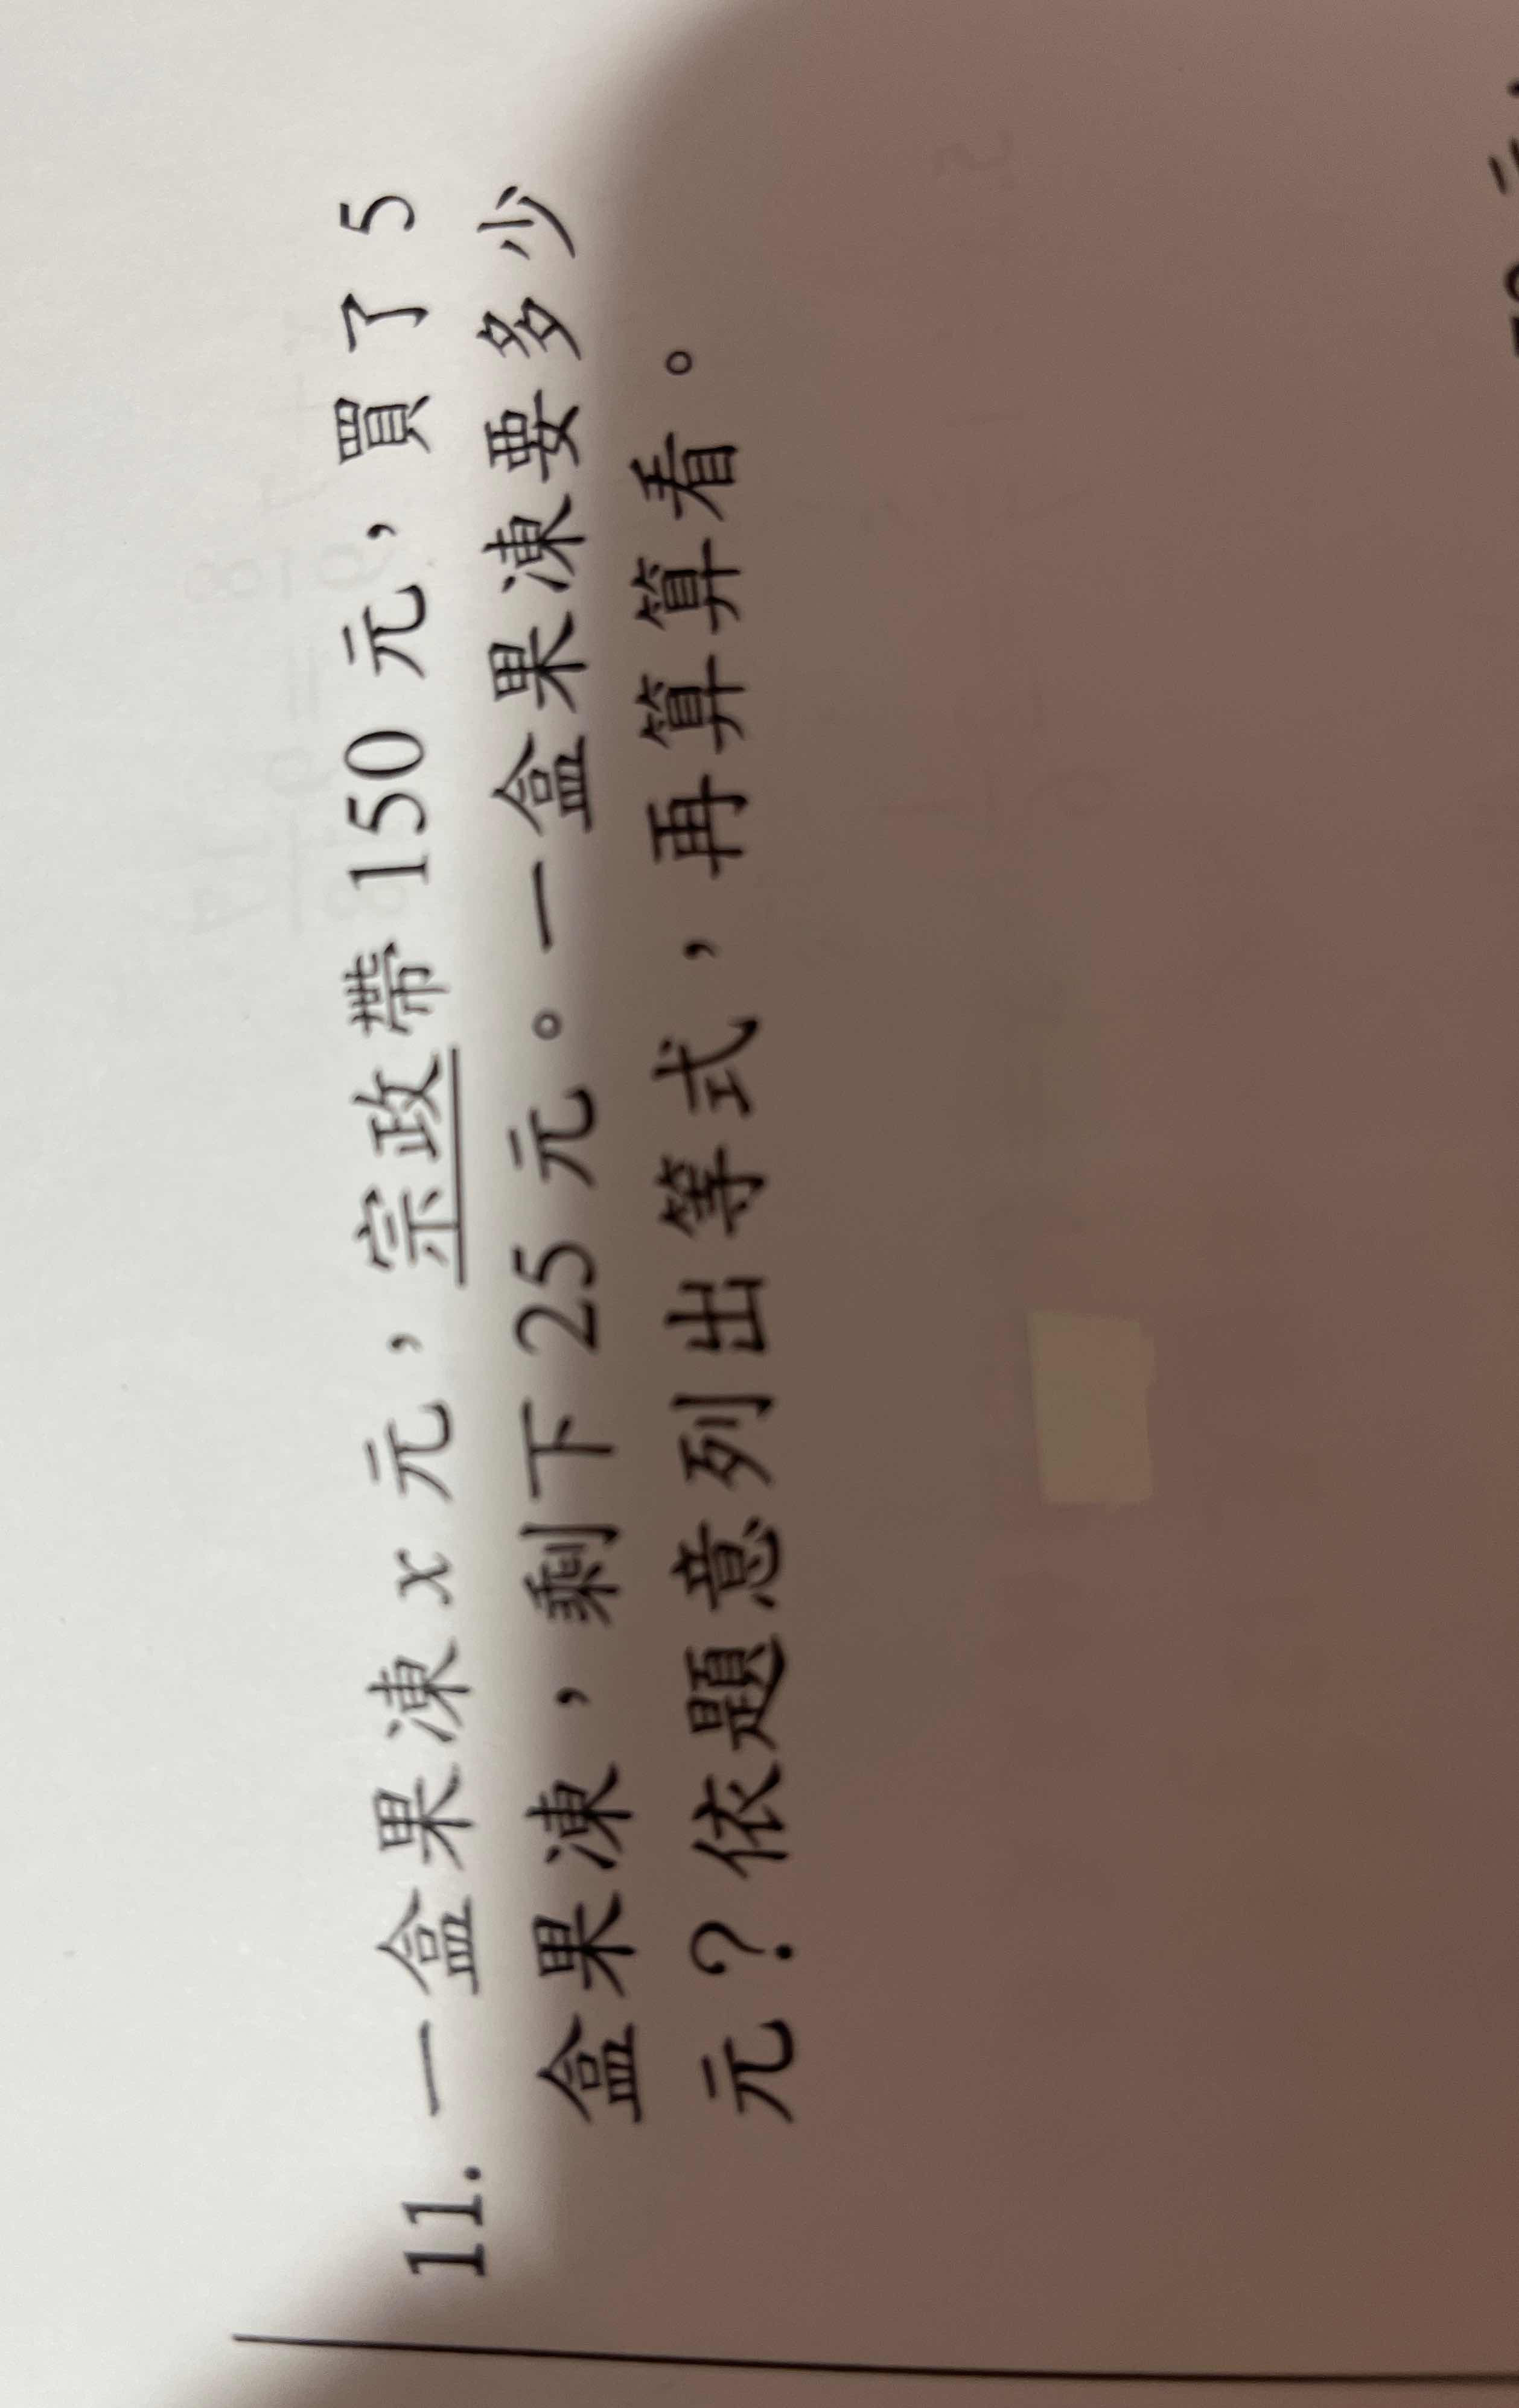 11. 一盒果凍 x 元，宗政帶 150 元，買了 5
盒果凍，剩下 25 元。一盒果凍要多少
元？依題意列出等式，再算算看。